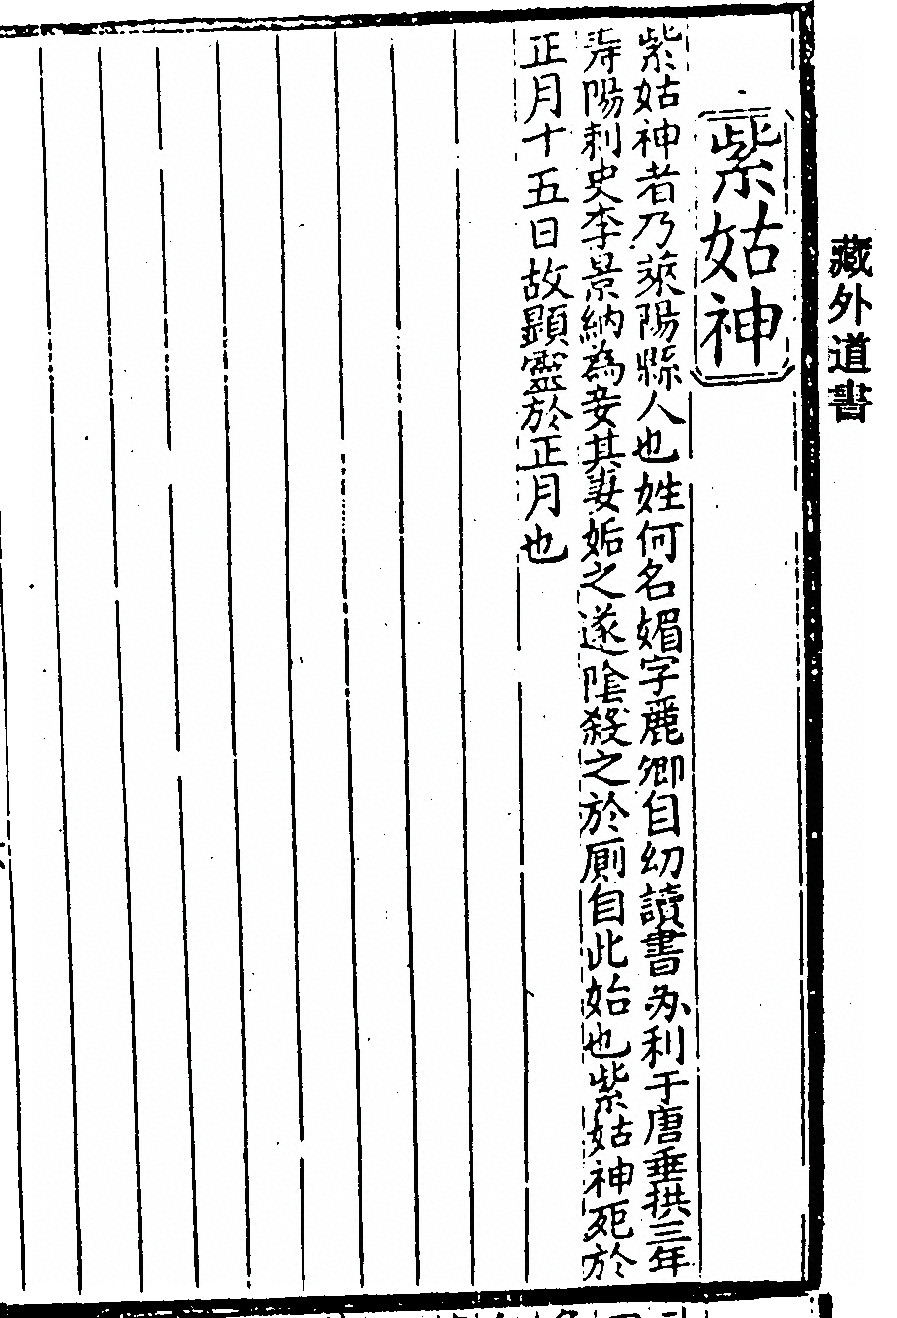 藏外道書
紫姑神
紫姑神者乃萊陽縣人也姓何名媚字麗卿自幼讀書办利于唐垂拱三年
壽陽刺史李景納為妾其妻妬之遂陰殺之於厠自此始也紫姑神死於
正月十五日故顯靈於正月也